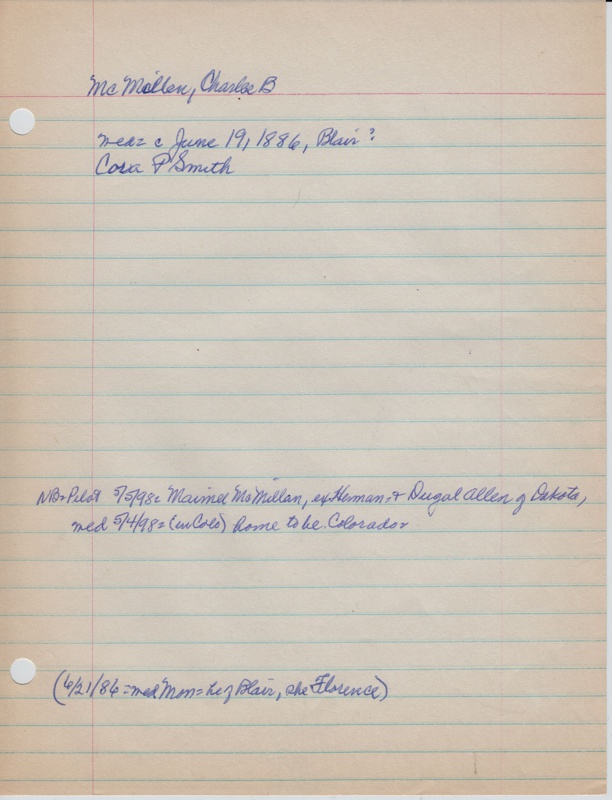 McMillen, Charles B
wed = c June 19, 1886, Blair?
Cora P Smith
NB = Pilot 5/5/98 = Maimel McMillan, ex Herman = & Dugal Allen of Dakota,
wed 5/4/98 = (in Colo) home to be Colorado =
(6/21/86 = wed Mon = he of Blair, she Florence)